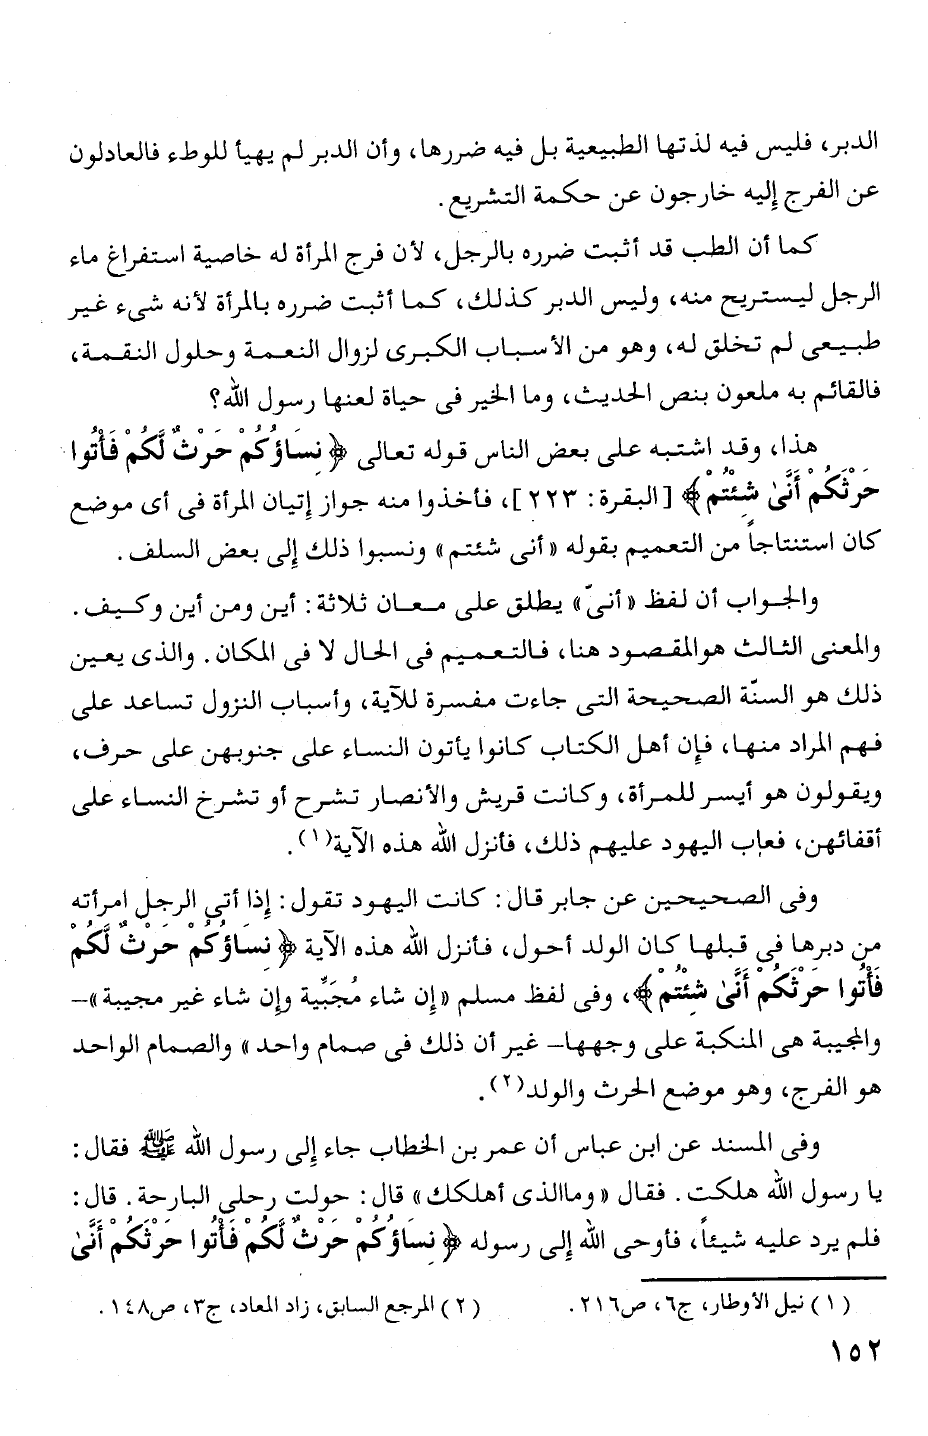 الدبر، فليس فيه لذتها الطبيعية بل فيه ضررها، وأن الدبر لم يهيأ للوطء فالعادلون
عن الفرج إليه خارجون عن حكمة التشريع.
كما أن الطب قد أثبت ضرره بالرجل، لأن فرج المرأة له خاصية استفراغ ماء
الرجل ليستريح منه، وليس الدبر كذلك، كما أثبت ضرره بالمرأة لأنه شىء غير
طبيعى لم تخلق له، وهو من الأسباب الكبرى لزوال النعمة وحلول النقمة،
فالقائم به ملعون بنص الحديث، وما الخير فى حياة لعنها رسول الله؟
هذا، وقد اشتبه على بعض الناس قوله تعالى ﴿نِسَاؤُكُمْ حَرْثٌ لَّكُمْ فَأْتُوا
حَرْثَكُمْ أَنَّىٰ شِئْتُمْ﴾ [البقرة: ٢٢٣]، فأخذوا منه جواز إتيان المرأة فى أى موضع
كان استنتاجاً من التعميم بقوله «أنى شئتم» ونسبوا ذلك إلى بعض السلف.
والجواب أن لفظ «أنىّ» يطلق على معان ثلاثة: أين ومن أين وكيف.
والمعنى الثالث هوالمقصود هنا، فالتعميم فى الحال لا فى المكان. والذى يعين
ذلك هو السنّة الصحيحة التى جاءت مفسرة للآية، وأسباب النزول تساعد على
فهم المراد منها، فإن أهل الكتاب كانوا يأتون النساء على جنوبهن على حرف،
ويقولون هو أيسر للمرأة، وكانت قريش والأنصار تشرح أو تشرخ النساء على
أقفائهن، فعاب اليهود عليهم ذلك، فأنزل الله هذه الآية(١).
وفى الصحيحين عن جابر قال: كانت اليهود تقول: إذا أتى الرجل امرأته
من دبرها فى قبلها كان الولد أحول، فأنزل الله هذه الآية ﴿نِسَاؤُكُمْ حَرْثٌ لَّكُمْ
فَأْتُوا حَرْثَكُمْ أَنَّىٰ شِئْتُمْ﴾، وفى لفظ مسلم «إن شاء مُجَبِّية وإن شاء غير مجيبة»–
والمجيبة هى المنكبة على وجهها– غير أن ذلك فى صمام واحد» والصمام الواحد
هو الفرج، وهو موضع الحرث والولد(٢).
وفى المسند عن ابن عباس أن عمر بن الخطاب جاء إلى رسول الله ﷺ فقال:
يا رسول الله هلكت. فقال «وماالذى أهلكك» قال: حولت رحلى البارحة. قال:
فلم يرد عليه شيئاً، فأوحى الله إلى رسوله ﴿نِسَاؤُكُمْ حَرْثٌ لَّكُمْ فَأْتُوا حَرْثَكُمْ أَنَّىٰ
(١) نيل الأوطار، ج٦، ص٢١٦. (٢) المرجع السابق، زاد المعاد، ج٣، ص١٤٨.
١٥٢